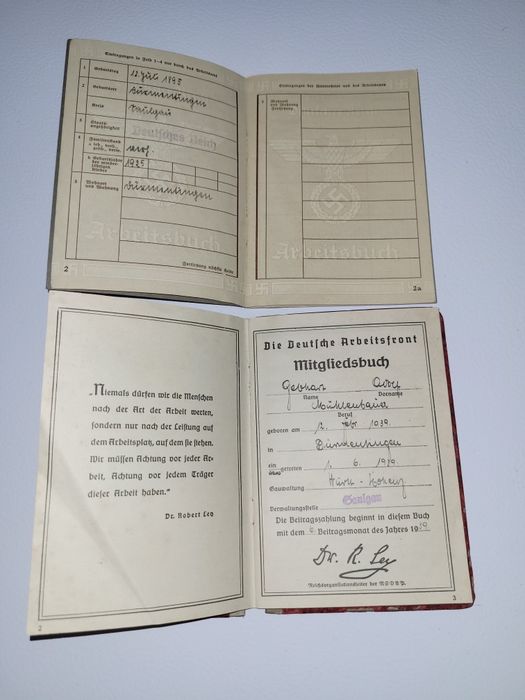 Eintragungen in Feld 1–4 nur durch das Arbeitsamt
1 Geburtstag 12. Juli 1895
2 Geburtsort
Kreis Saulgau
3 Staatsangehörigkeit Deutsches Reich
4 Familienstand
verh.
b. Geburtsjahre der minderjährigen Kinder 1925
5 Wohnort und Wohnung
Arbeitsbuch
Fortsetzung nächste Seite
2
5 Wohnort und Wohnung
Arbeitsbuch
2a
„Niemals dürfen wir die Menschen
nach der Art der Arbeit werten,
sondern nur nach der Leistung auf
dem Arbeitsplatz, auf dem sie stehen.
Wir müssen Achtung vor jeder Arbeit,
Achtung vor jedem Träger
dieser Arbeit haben.“
Dr. Robert Ley
2
Die Deutsche Arbeitsfront
Mitgliedsbuch
Gebhart
Name Vorname
Mühlenbauer
Beruf
geboren am 12.
in
eingetreten 1. 6. 1939
Gauwaltung Württ.-Hohenz
Verwaltungsstelle Saulgau
Die Beitragszahlung beginnt in diesem Buch
mit dem 6. Beitragsmonat des Jahres 1939
Dr. R. Ley
Reichsorganisationsleiter der NSDAP.
3